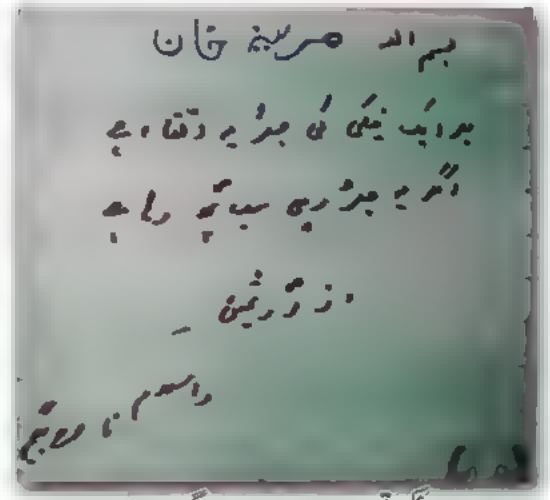 بسم اللہ خان
ہر ایک نیکی کی جڑ یہ اتقاء ہے
اگر یہ جڑ رہی سب کچھ رہا ہے
از درثمین
والسلام